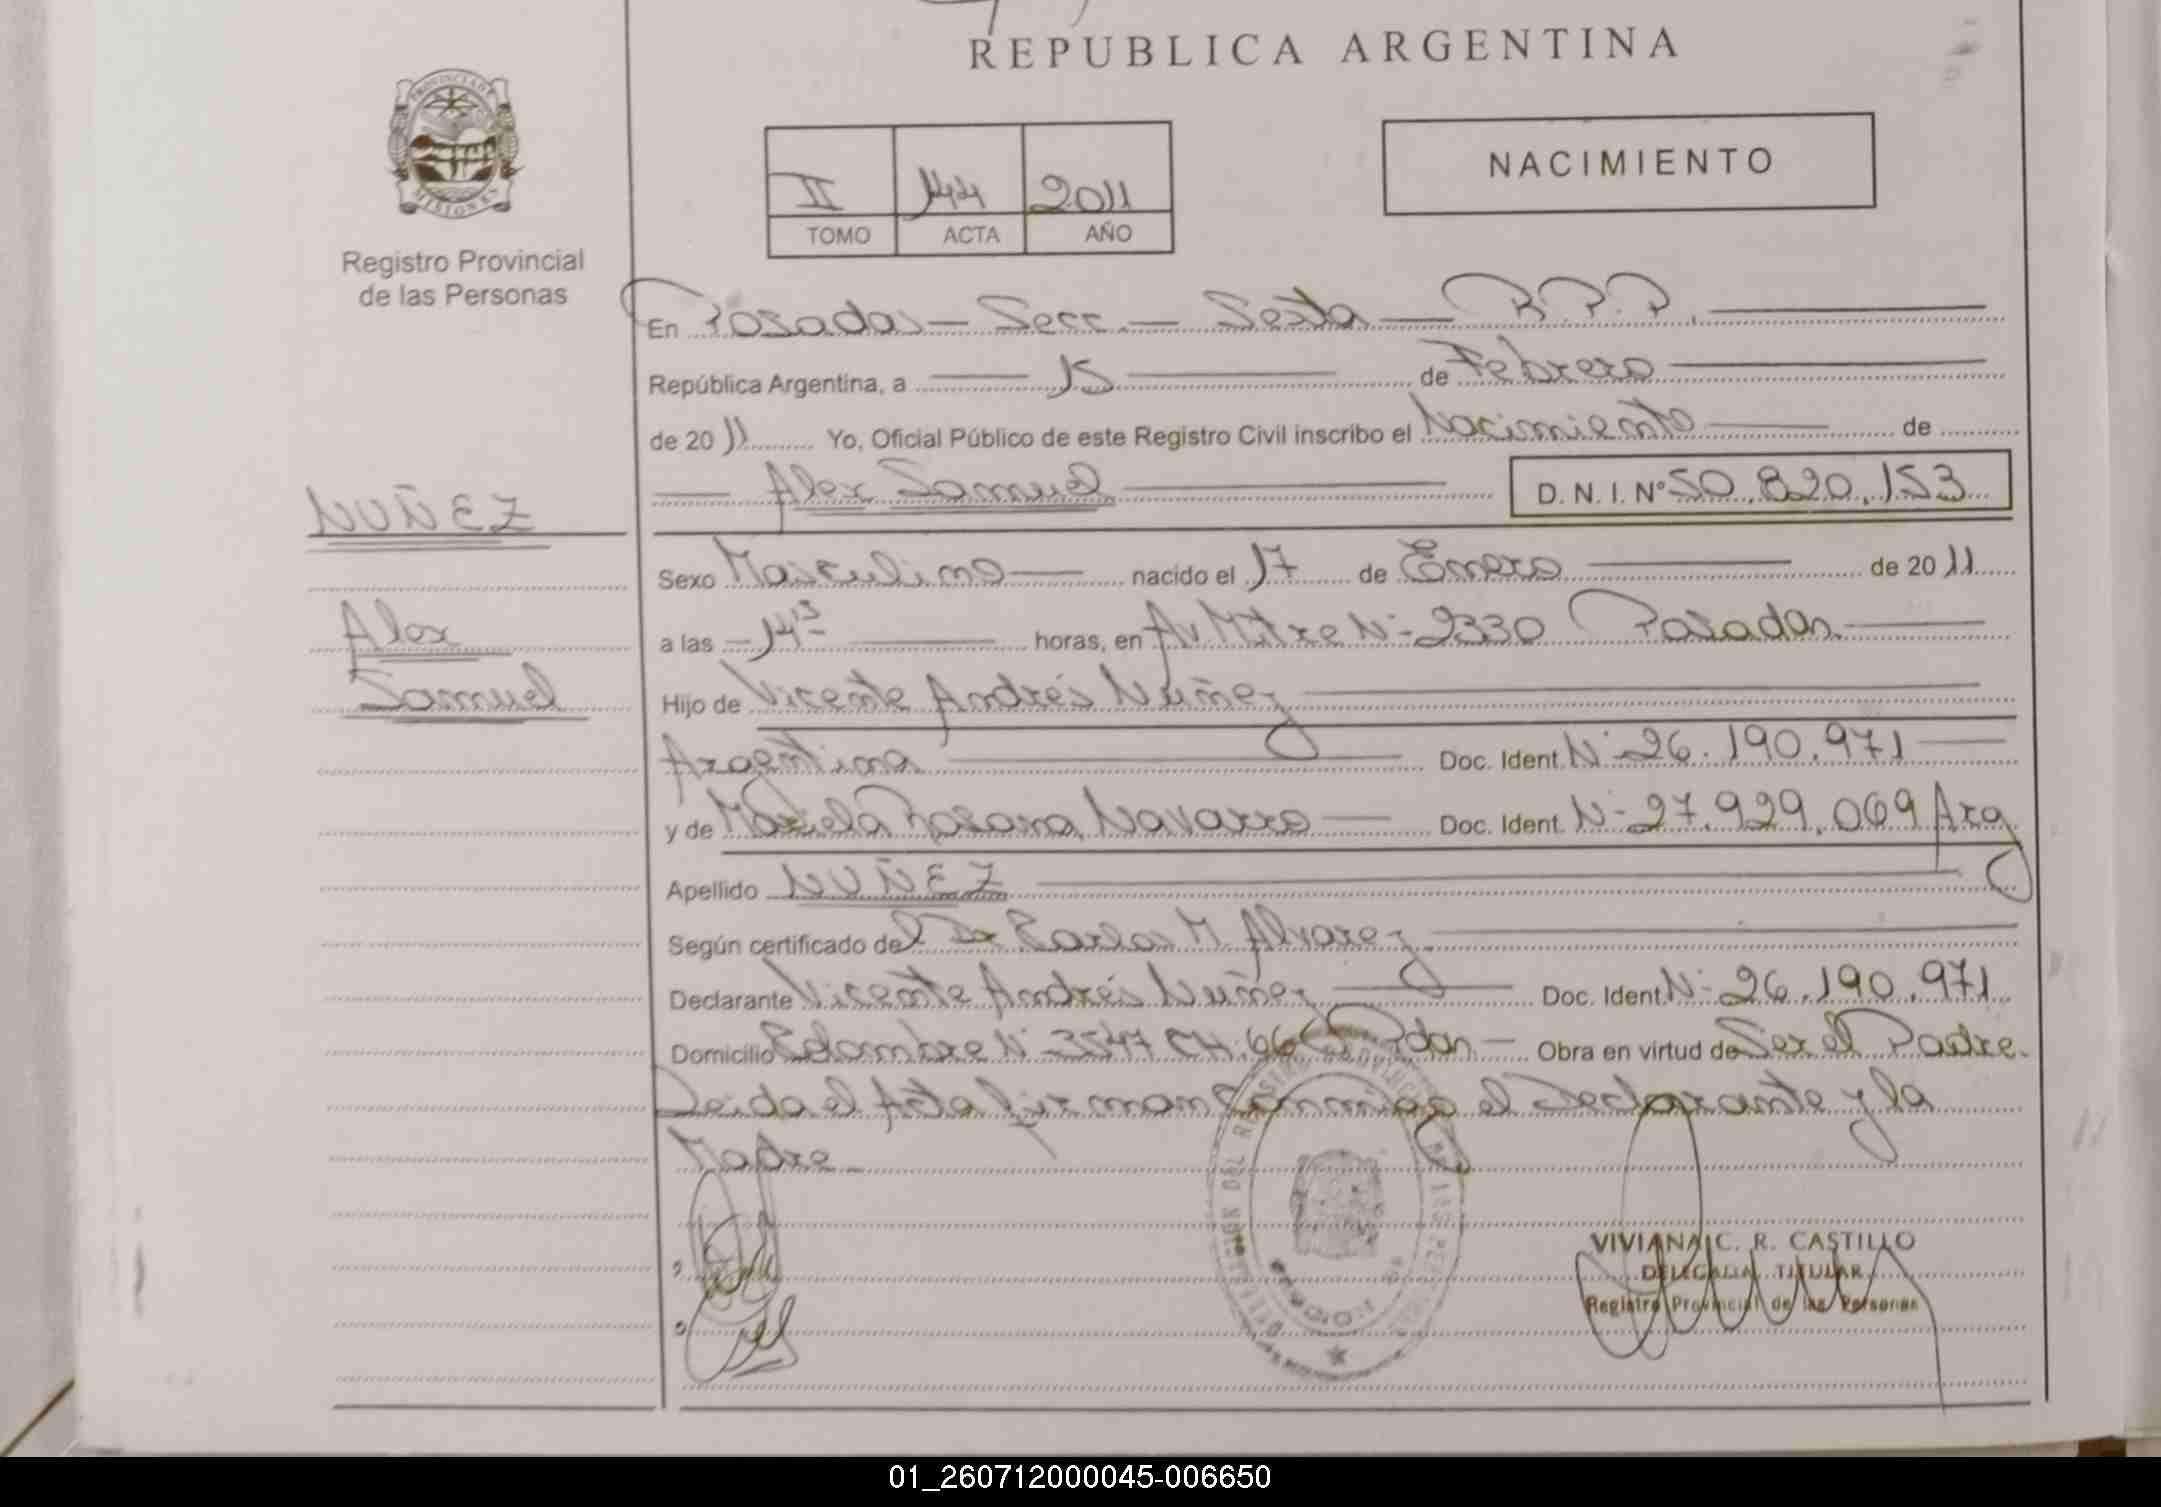 REPUBLICA ARGENTINA
PROVINCIA DE
MISIONES
Registro Provincial
de las Personas
II 144 2011
TOMO ACTA AÑO
NACIMIENTO
En Posadas — Secc. — Sexta — R.P.P.
República Argentina, a — 15 — de Febrero
de 20 11 Yo, Oficial Público de este Registro Civil inscribo el Nacimiento — de
— Alex Samuel — D. N. I. Nº 50.820.153
NUÑEZ
Alex
Samuel
Sexo Masculino — nacido el 17 de Enero — de 20 11
a las — 14 — horas, en Av Mitre Nº 2330 Posadas.
Hijo de Vicente Andrés Nuñez
Argentina — Doc. Ident. Nº 26.190.971
y de Mariela Rosana Navarro — Doc. Ident. Nº 27.929.069 Arg
Apellido NUÑEZ
Según certificado del Dr M Alvarez
Declarante Vicente Andrés Nuñez — Doc. Ident. Nº 26.190.971
Domicilio Pdas. — Obra en virtud de Ser el Padre.
Leida el Acta firman conmigo el Declarante y la
Madre
VIVIANA C. R. CASTILLO
DELEGADA TITULAR
Registro Provincial de las Personas
01_260712000045-006650